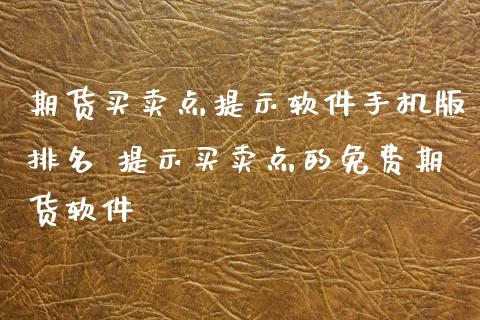 期货买卖点提示软件手机版
排名 提示买卖点的免费期
货软件